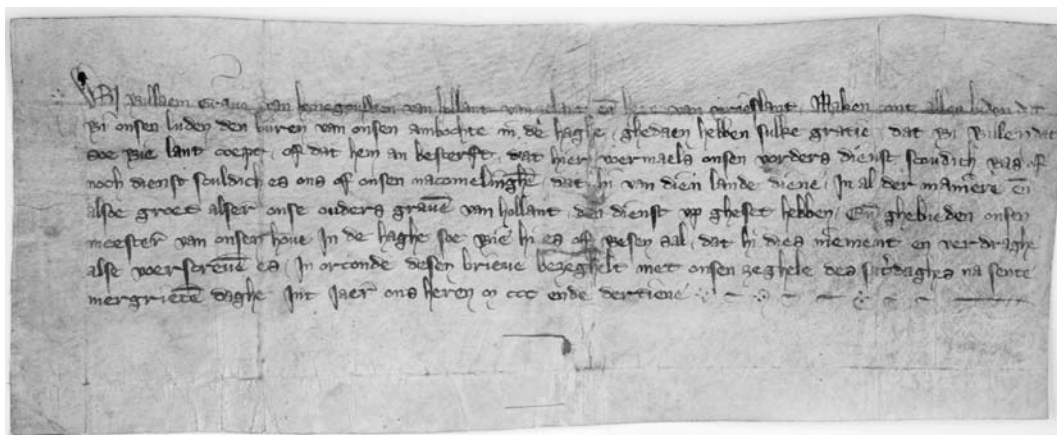 Wi willaem Grave van heinegouwen van hollant van zelant en̄ here van vrieslant. Maken cont allen luden dat
wi onsen luden den buren van onsen ambochte in de haghe, ghedaen hebben sulke gratie, dat wi willen dat
soe wie lant coept, of dat hem an besterft, dat hier voermaels onsen vorders dienst sculdich was of
noch dienst sculdich es ons of onsen nacomelinghē, dat hi van dien lande diene, In al der maniere en̄
alsoe groet alser onse ouders gravē van hollant, den dienst up gheset hebben, En̄ ghebieden onsen
meester van onsen hove In de haghe soe wie hi es of wesen sal, dat hi dies niement en verdraghe
alse voerscrevē es, In orconde desen brieve bezeghelt met onsen zeghele des sat'daghes na sente
mergrietē daghe Int Jaer ons heren m ccc ende dertiene